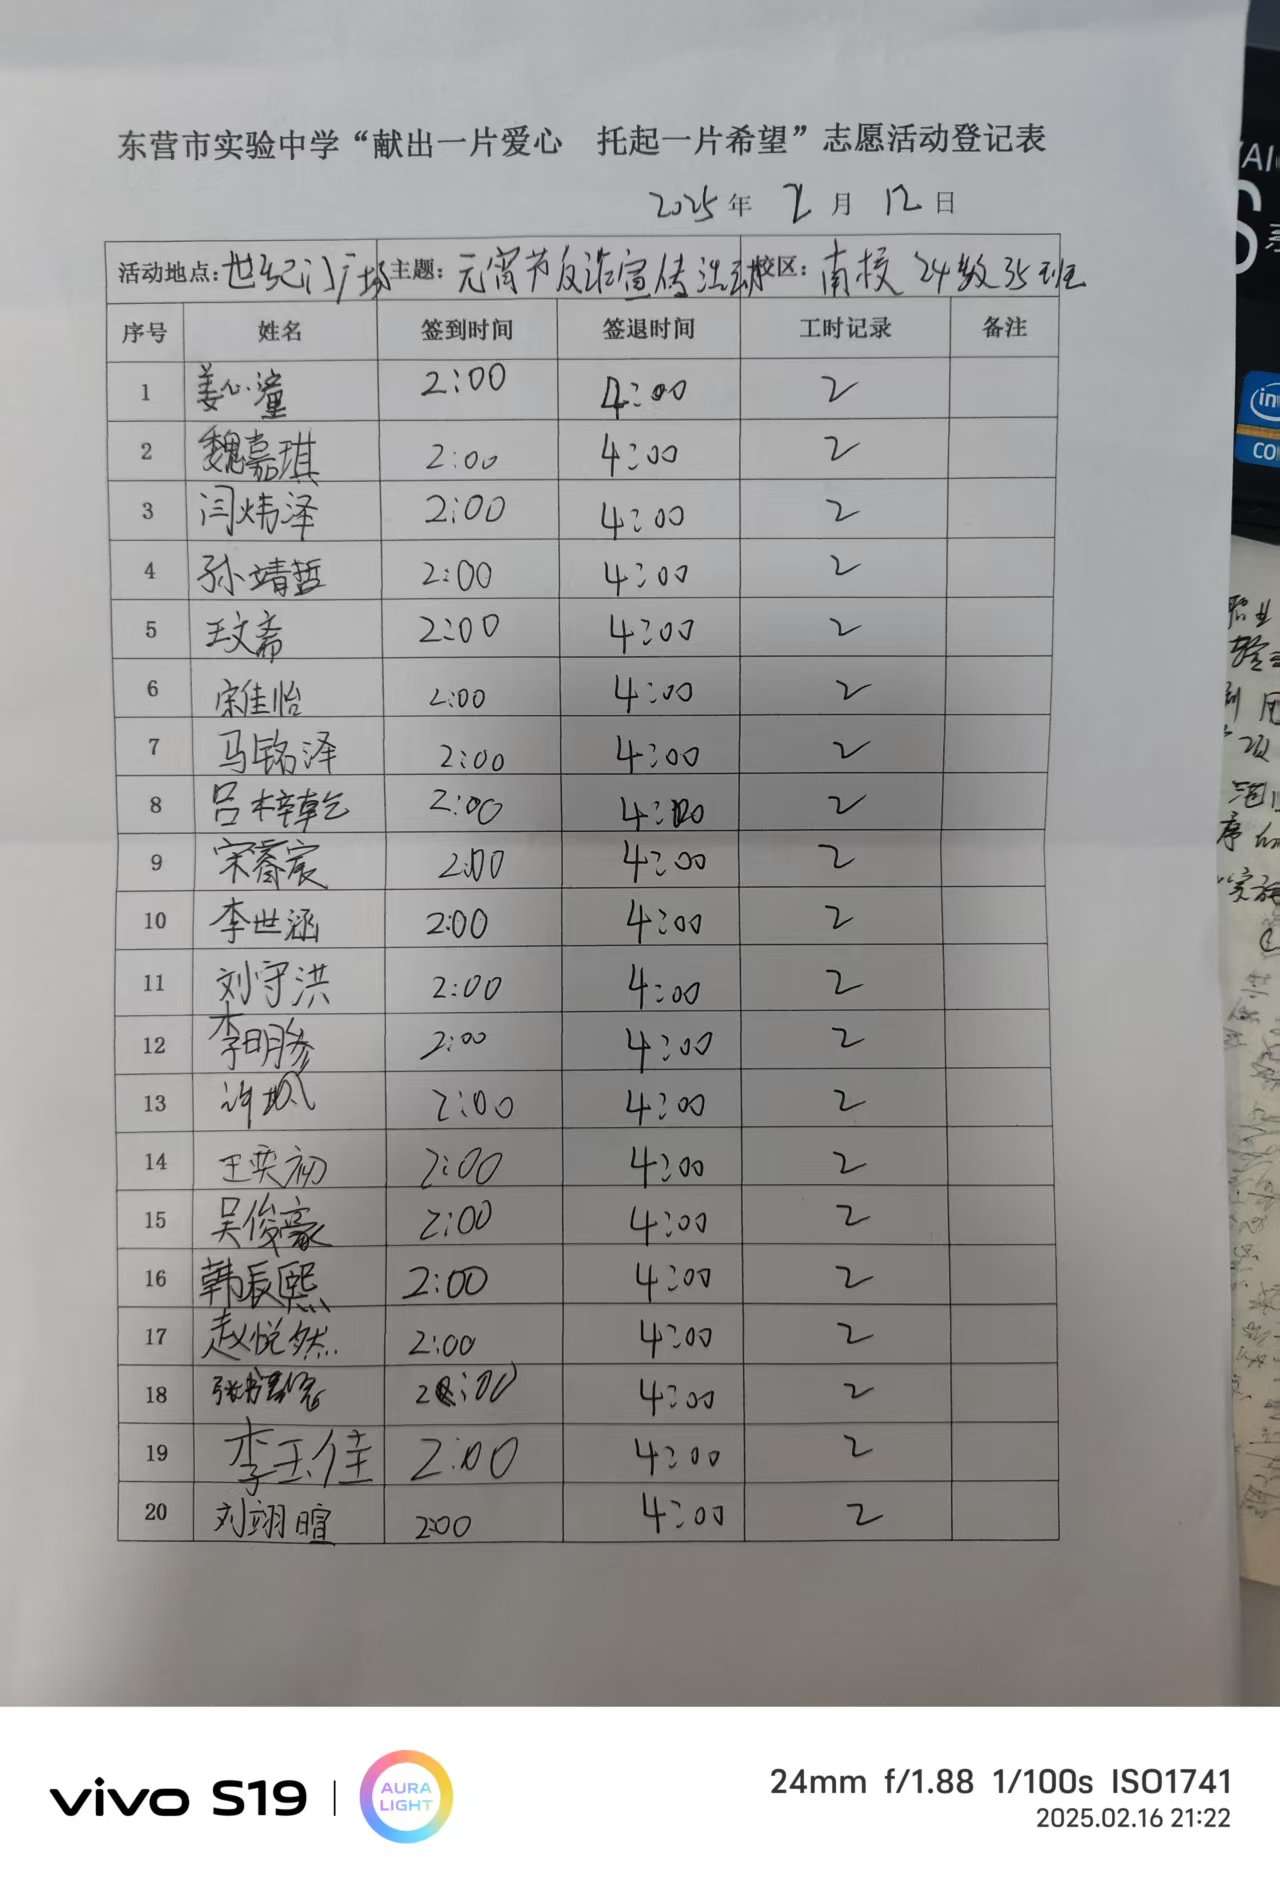 东营市实验中学“献出一片爱心 托起一片希望”志愿活动登记表
2025年 2月 12日
活动地点：世纪门广场 主题：元宵节反诈宣传活动 校区：南校 24级35班
序号 姓名 签到时间 签退时间 工时记录 备注
1 姜心潼 2:00 4:00 2
2 魏嘉琪 2:00 4:00 2
3 闫炜泽 2:00 4:00 2
4 孙靖哲 2:00 4:00 2
5 王文斋 2:00 4:00 2
6 宋佳怡 2:00 4:00 2
7 马铭泽 2:00 4:00 2
8 吕梓乾 2:00 4:00 2
9 宋睿宸 2:00 4:00 2
10 李世涵 2:00 4:00 2
11 刘守洪 2:00 4:00 2
12 李明 2:00 4:00 2
13 许 2:00 4:00 2
14 王奕初 2:00 4:00 2
15 吴俊豪 2:00 4:00 2
16 韩辰熙 2:00 4:00 2
17 赵悦然 2:00 4:00 2
18 张 2:00 4:00 2
19 李玉佳 2:00 4:00 2
20 刘翊暄 2:00 4:00 2
vivo S19
AURA
LIGHT
24mm f/1.88 1/100s ISO1741
2025.02.16 21:22